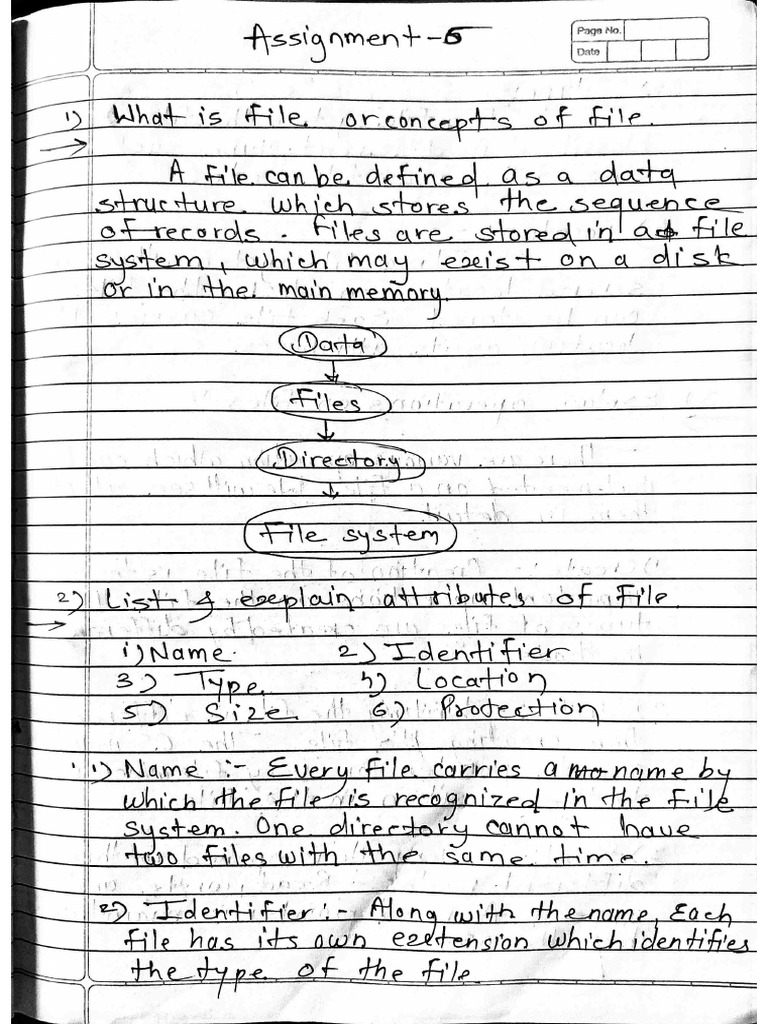 Assignment-5
Page No.
Date
1) What is file or concepts of file.
→
A file can be defined as a data
structure which stores the sequence
of records. Files are stored in a file
system, which may exist on a disk
or in the main memory.
Data
↓
Files
↓
Directory
↓
File system
2) List & explain attributes of file.
→
i) Name. 2) Identifier
3) Type. 4) Location
5) Size. 6) Protection
1) Name :- Every file carries a name by
which the file is recognized in the file
system. One directory cannot have
two files with the same time.
2) Identifier :- Along with the name, Each
file has its own extension which identifies
the type of the file